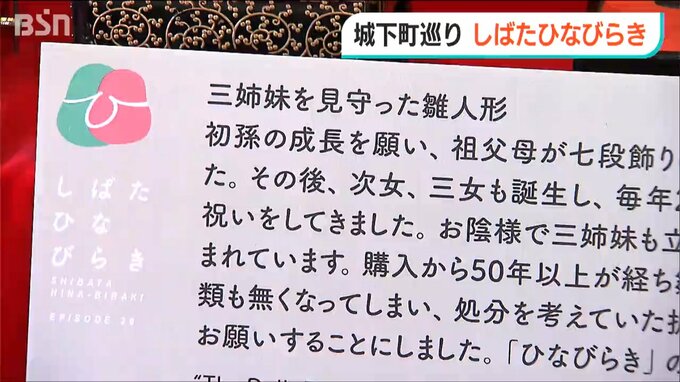 BSN
城下町巡り しばたひなびらき
三姉妹を見守った雛人形
初孫の成長を願い、祖父母が七段飾り
た。その後、次女、三女も誕生し、毎年
祝いをしてきました。お陰様で三姉妹も立
まれています。購入から50年以上が経ち
類も無くなってしまい、処分を考えていた
お願いすることにしました。「ひなびらき」の
しばた
ひな
びらき
SHIBATA
HINA-BIRAKI
EPISODE
"The